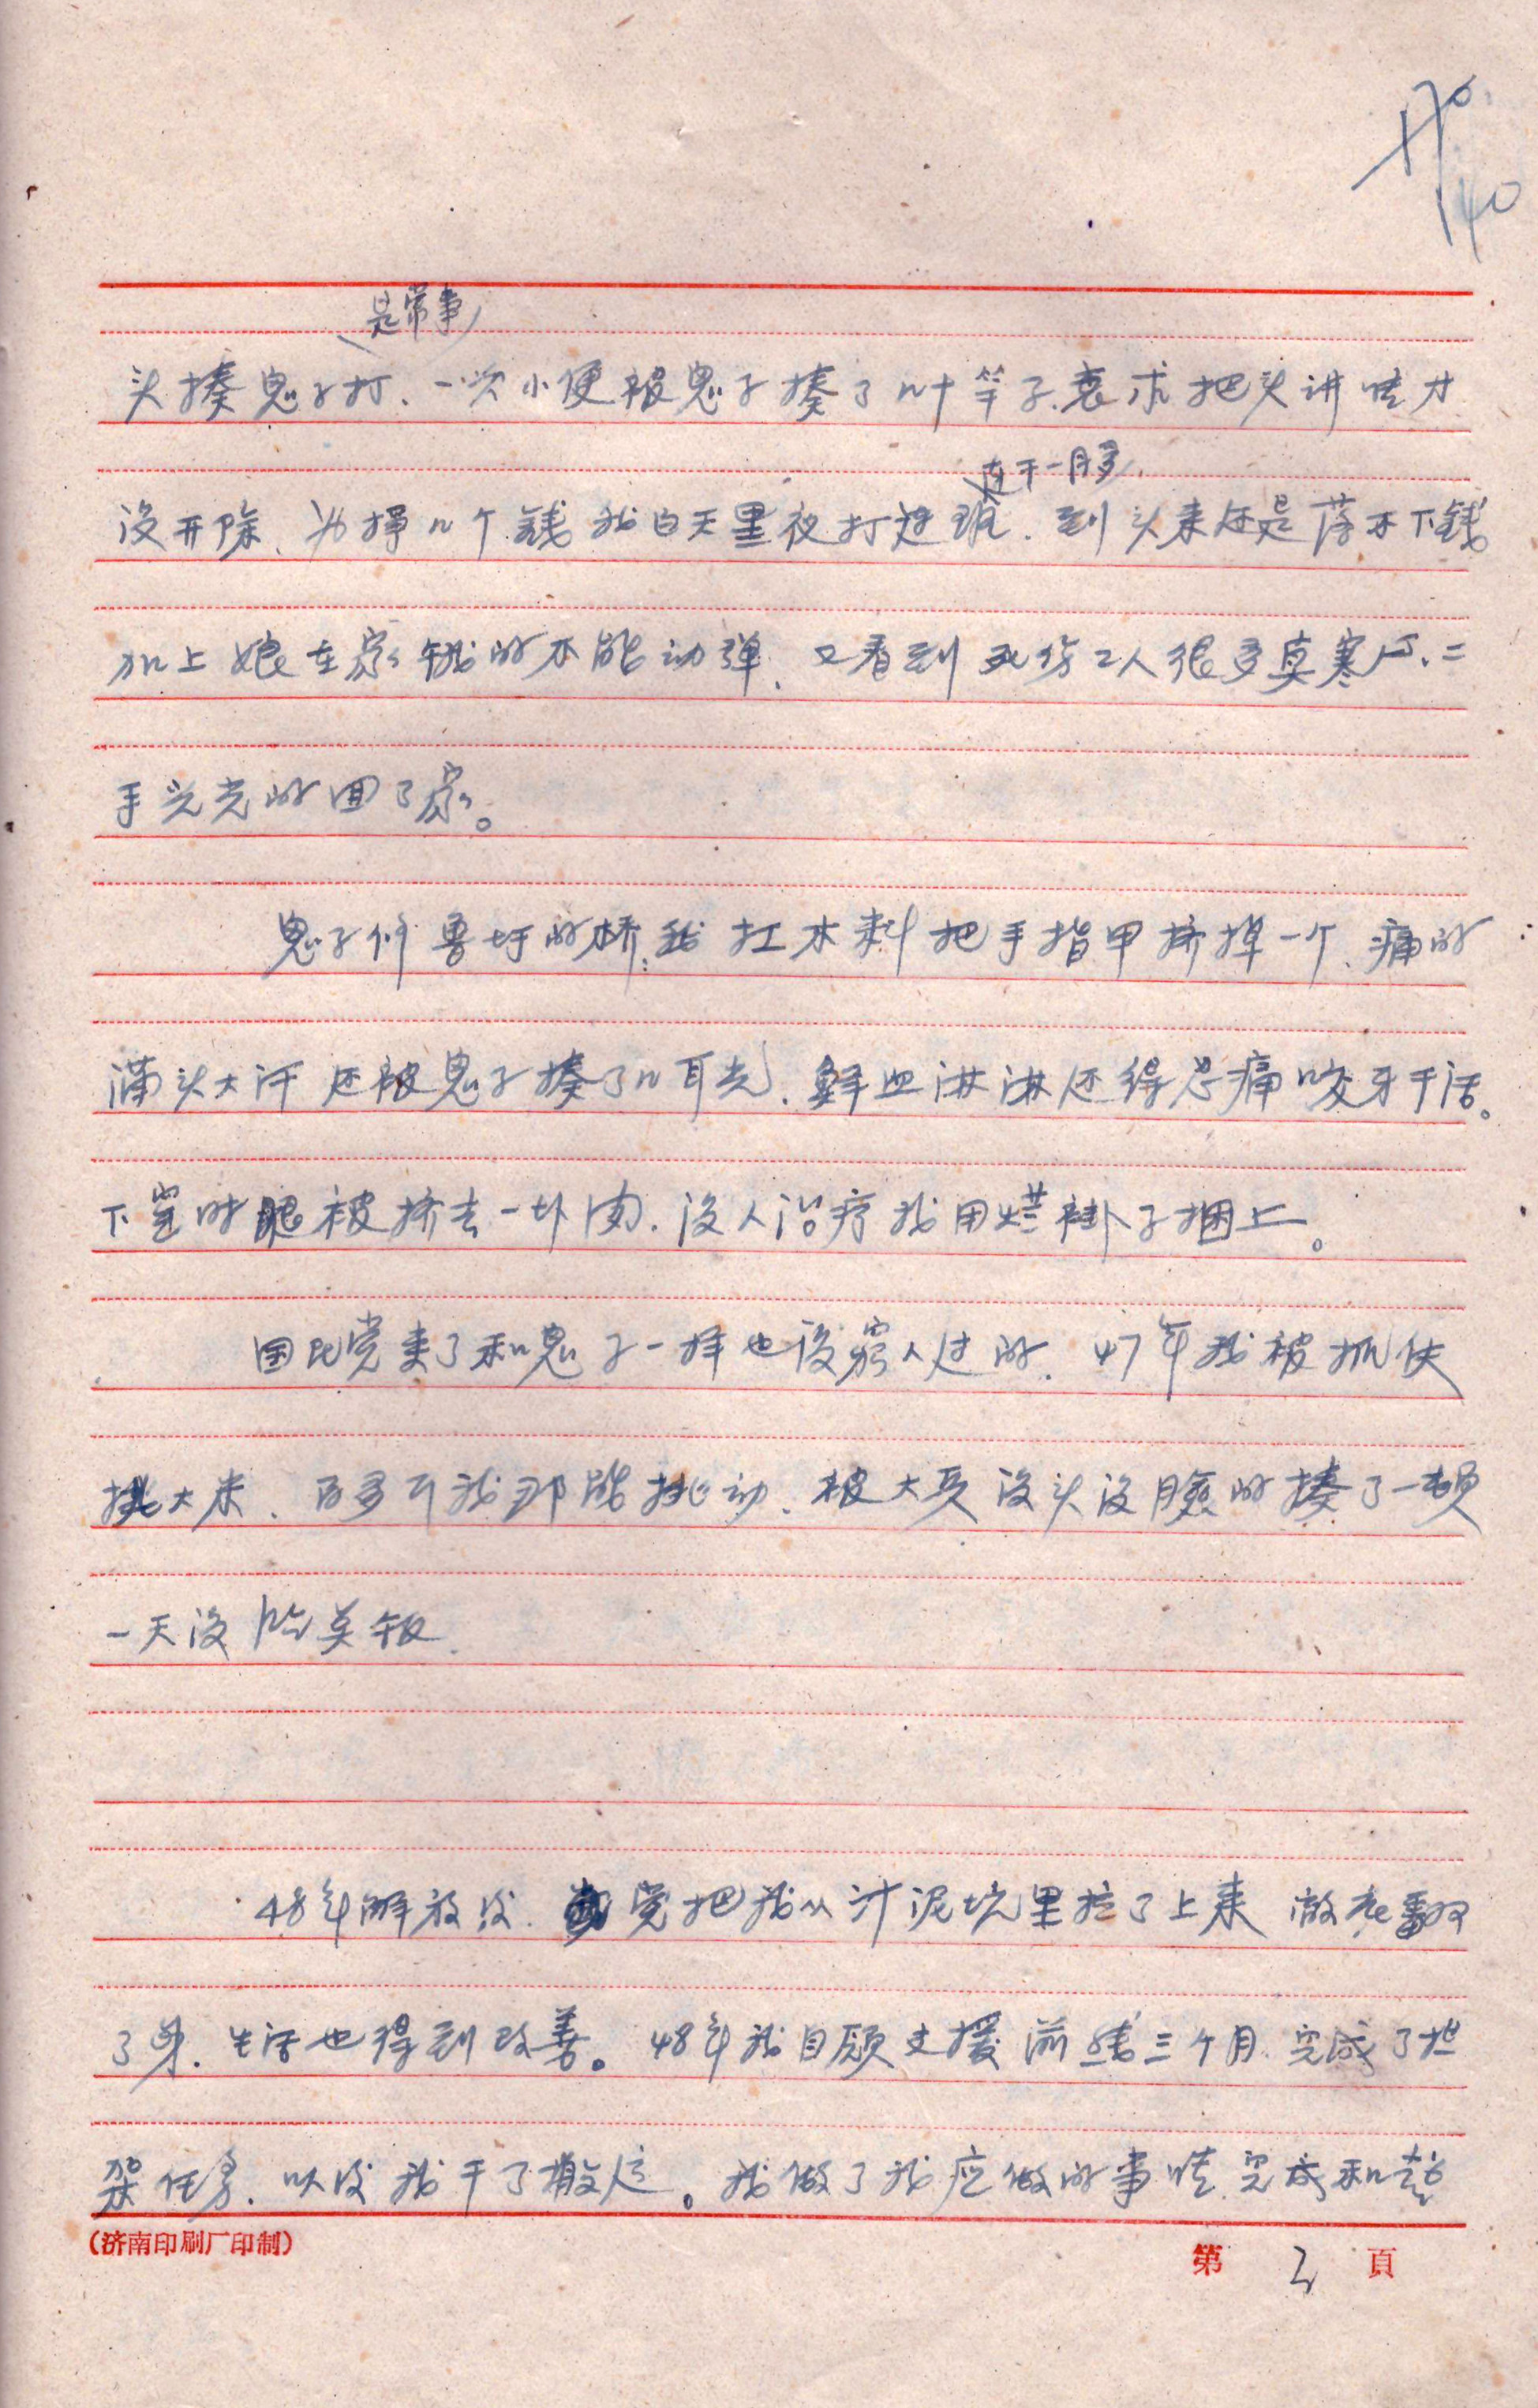 140
是常事
头揍鬼子打、一次小便被鬼子揍了几十竿子、哀求把头讲情才
连干一月多、
没开除、为挣几个钱我白天黑夜打连班、到头来还是落不下钱
加上娘在家饿的不能动弹、又看到死伤工人很多真寒心、二
手光光的回了家。
鬼子修 的桥、我扛木料把手指甲挤掉一个、痛的
满头大汗还被鬼子揍了几耳光、鲜血淋淋还得忍痛咬牙干活。
下窑时腿被挤去一块肉、没人治疗我用烂褂子捆上。
国民党来了和鬼子一样也没穷人过的、47年我被抓伕
挑大米、百多斤我那能挑动、被大兵没头没脸的揍了一顿
一天没吃关饭
48年解放后、党把我从汁泥坑里拉了上来 翻
了身、生活也得到改善。48年我自愿支援前线三个月、完成了担
架任务、以后我干了搬运。我做了我应做的事情、完成和超
(济南印刷厂印制)
第 2 頁